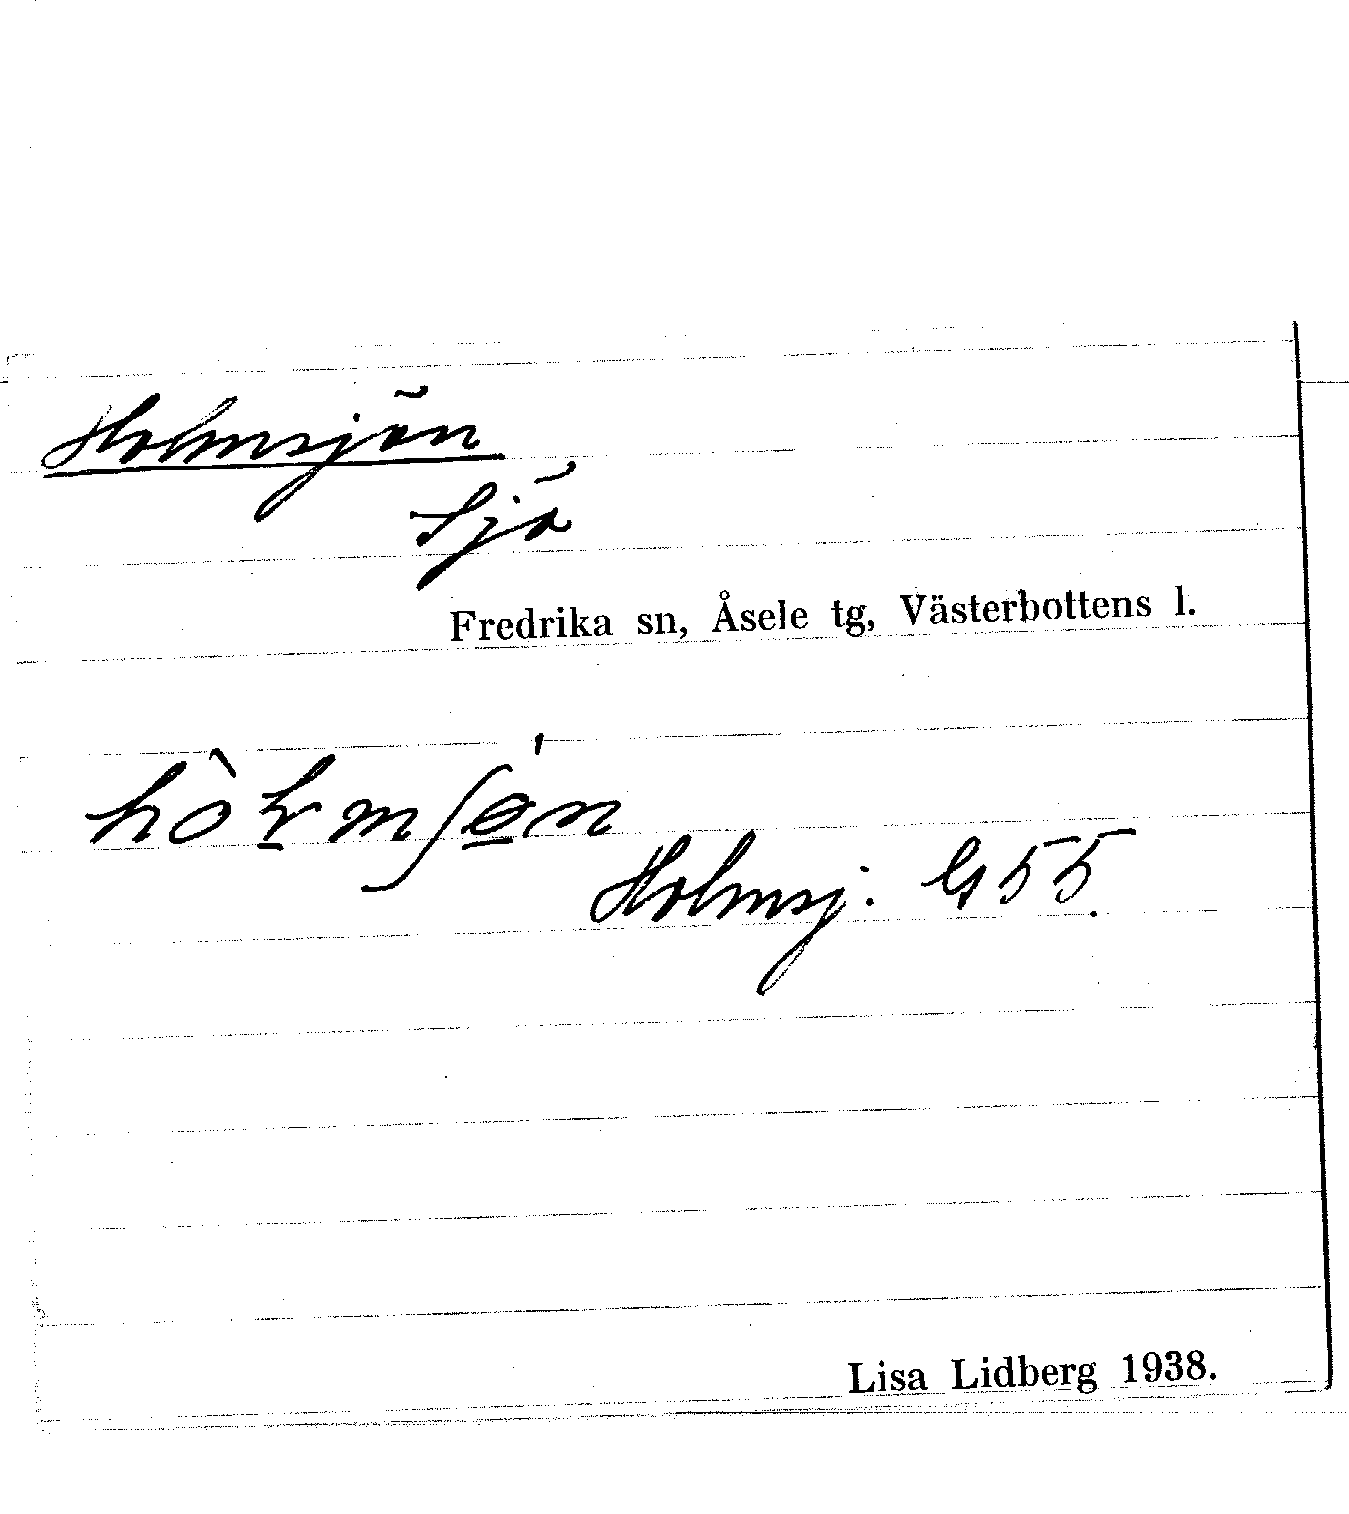 Holmsjön
Sjö
Fredrika sn, Åsele tg, Västerbottens l.
Holmsj. G55.
Lisa Lidberg 1938.